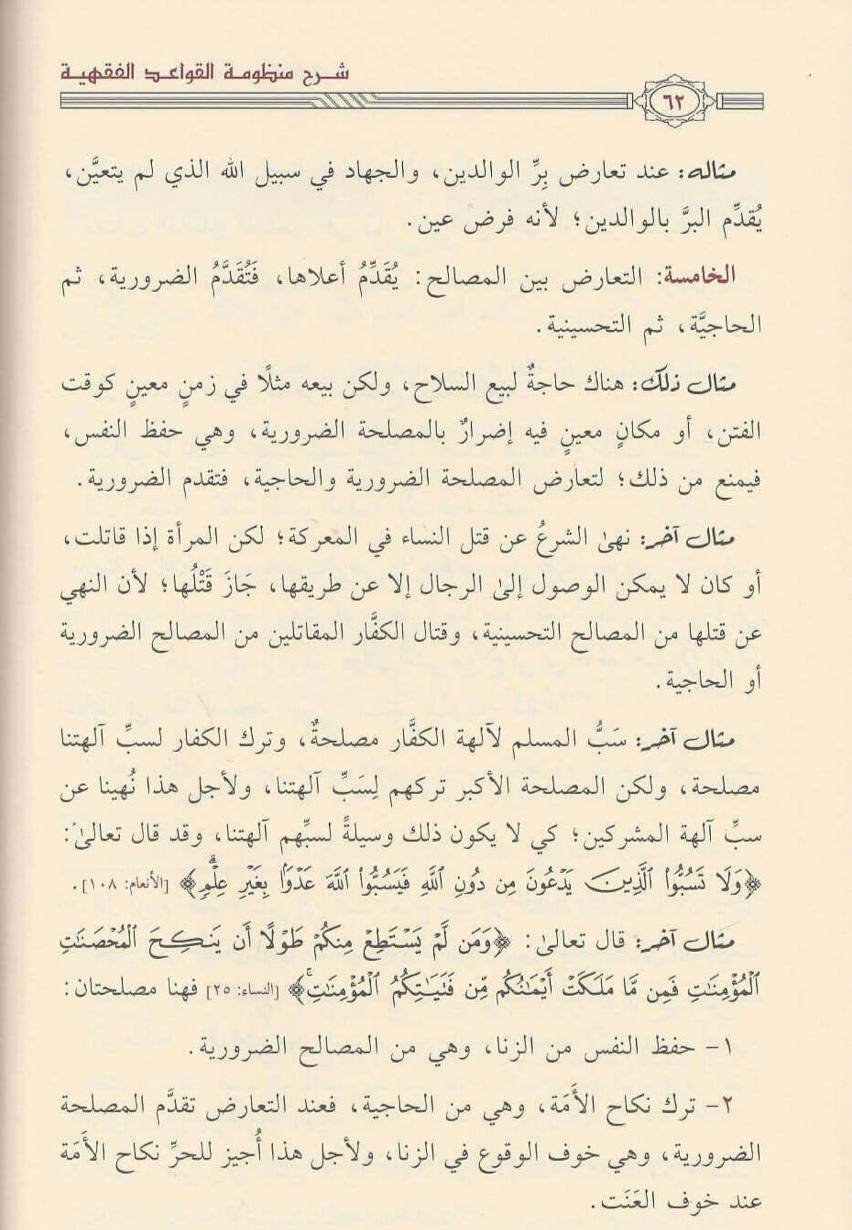 شرح منظومة القواعد الفقهية
٦٢
مثاله: عند تعارض بِرِّ الوالدين، والجهاد في سبيل الله الذي لم يتعيَّن،
يُقدِّم البرَّ بالوالدين؛ لأنه فرض عين.
الخامسة: التعارض بين المصالح: يُقَدِّمُ أعلاها، فَتُقَدَّمُ الضرورية، ثم
الحاجيَّة، ثم التحسينية.
مثال ذلك: هناك حاجةٌ لبيع السلاح، ولكن بيعه مثلًا في زمنٍ معينٍ كوقت
الفتن، أو مكانٍ معينٍ فيه إضرارٌ بالمصلحة الضرورية، وهي حفظ النفس،
فيمنع من ذلك؛ لتعارض المصلحة الضرورية والحاجية، فتقدم الضرورية.
مثال آخر: نهىٰ الشرعُ عن قتل النساء في المعركة؛ لكن المرأة إذا قاتلت،
أو كان لا يمكن الوصول إلىٰ الرجال إلا عن طريقها، جَازَ قَتْلُها؛ لأن النهي
عن قتلها من المصالح التحسينية، وقتال الكفَّار المقاتلين من المصالح الضرورية
أو الحاجية.
مثال آخر: سَبُّ المسلم لآلهة الكفَّار مصلحةٌ، وترك الكفار لسبِّ آلهتنا
مصلحة، ولكن المصلحة الأكبر تركهم لِسَبِّ آلهتنا، ولأجل هذا نُهينا عن
سبِّ آلهة المشركين؛ كي لا يكون ذلك وسيلةً لسبِّهم آلهتنا، وقد قال تعالىٰ:
﴿وَلَا تَسُبُّوا۟ ٱلَّذِينَ يَدْعُونَ مِن دُونِ ٱللَّهِ فَيَسُبُّوا۟ ٱللَّهَ عَدْوَۢا بِغَيْرِ عِلْمٍۗ﴾ [الأنعام: ١٠٨].
مثال آخر: قال تعالىٰ: ﴿وَمَن لَّمْ يَسْتَطِعْ مِنكُمْ طَوْلًا أَن يَنكِحَ ٱلْمُحْصَنَٰتِ
ٱلْمُؤْمِنَٰتِ فَمِن مَّا مَلَكَتْ أَيْمَٰنُكُم مِّن فَتَيَٰتِكُمُ ٱلْمُؤْمِنَٰتِۚ﴾ [النساء: ٢٥] فهنا مصلحتان:
١- حفظ النفس من الزنا، وهي من المصالح الضرورية.
٢- ترك نكاح الأَمَة، وهي من الحاجية، فعند التعارض تقدَّم المصلحة
الضرورية، وهي خوف الوقوع في الزنا، ولأجل هذا أُجيز للحرِّ نكاح الأَمَة
عند خوف العَنَت.